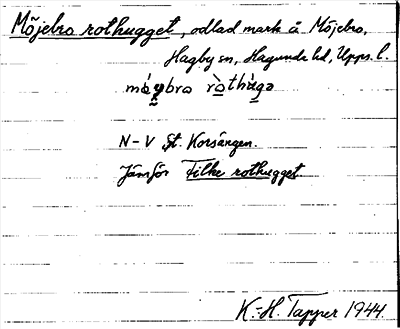 Möjebro rothugget, odlad mark å Möjebro,
Hagby sn, Hagunda hd, Upps. l.
N-V St. Korsängen.
Jämför Filke rothugget.
K.-H. Tapper 1944.